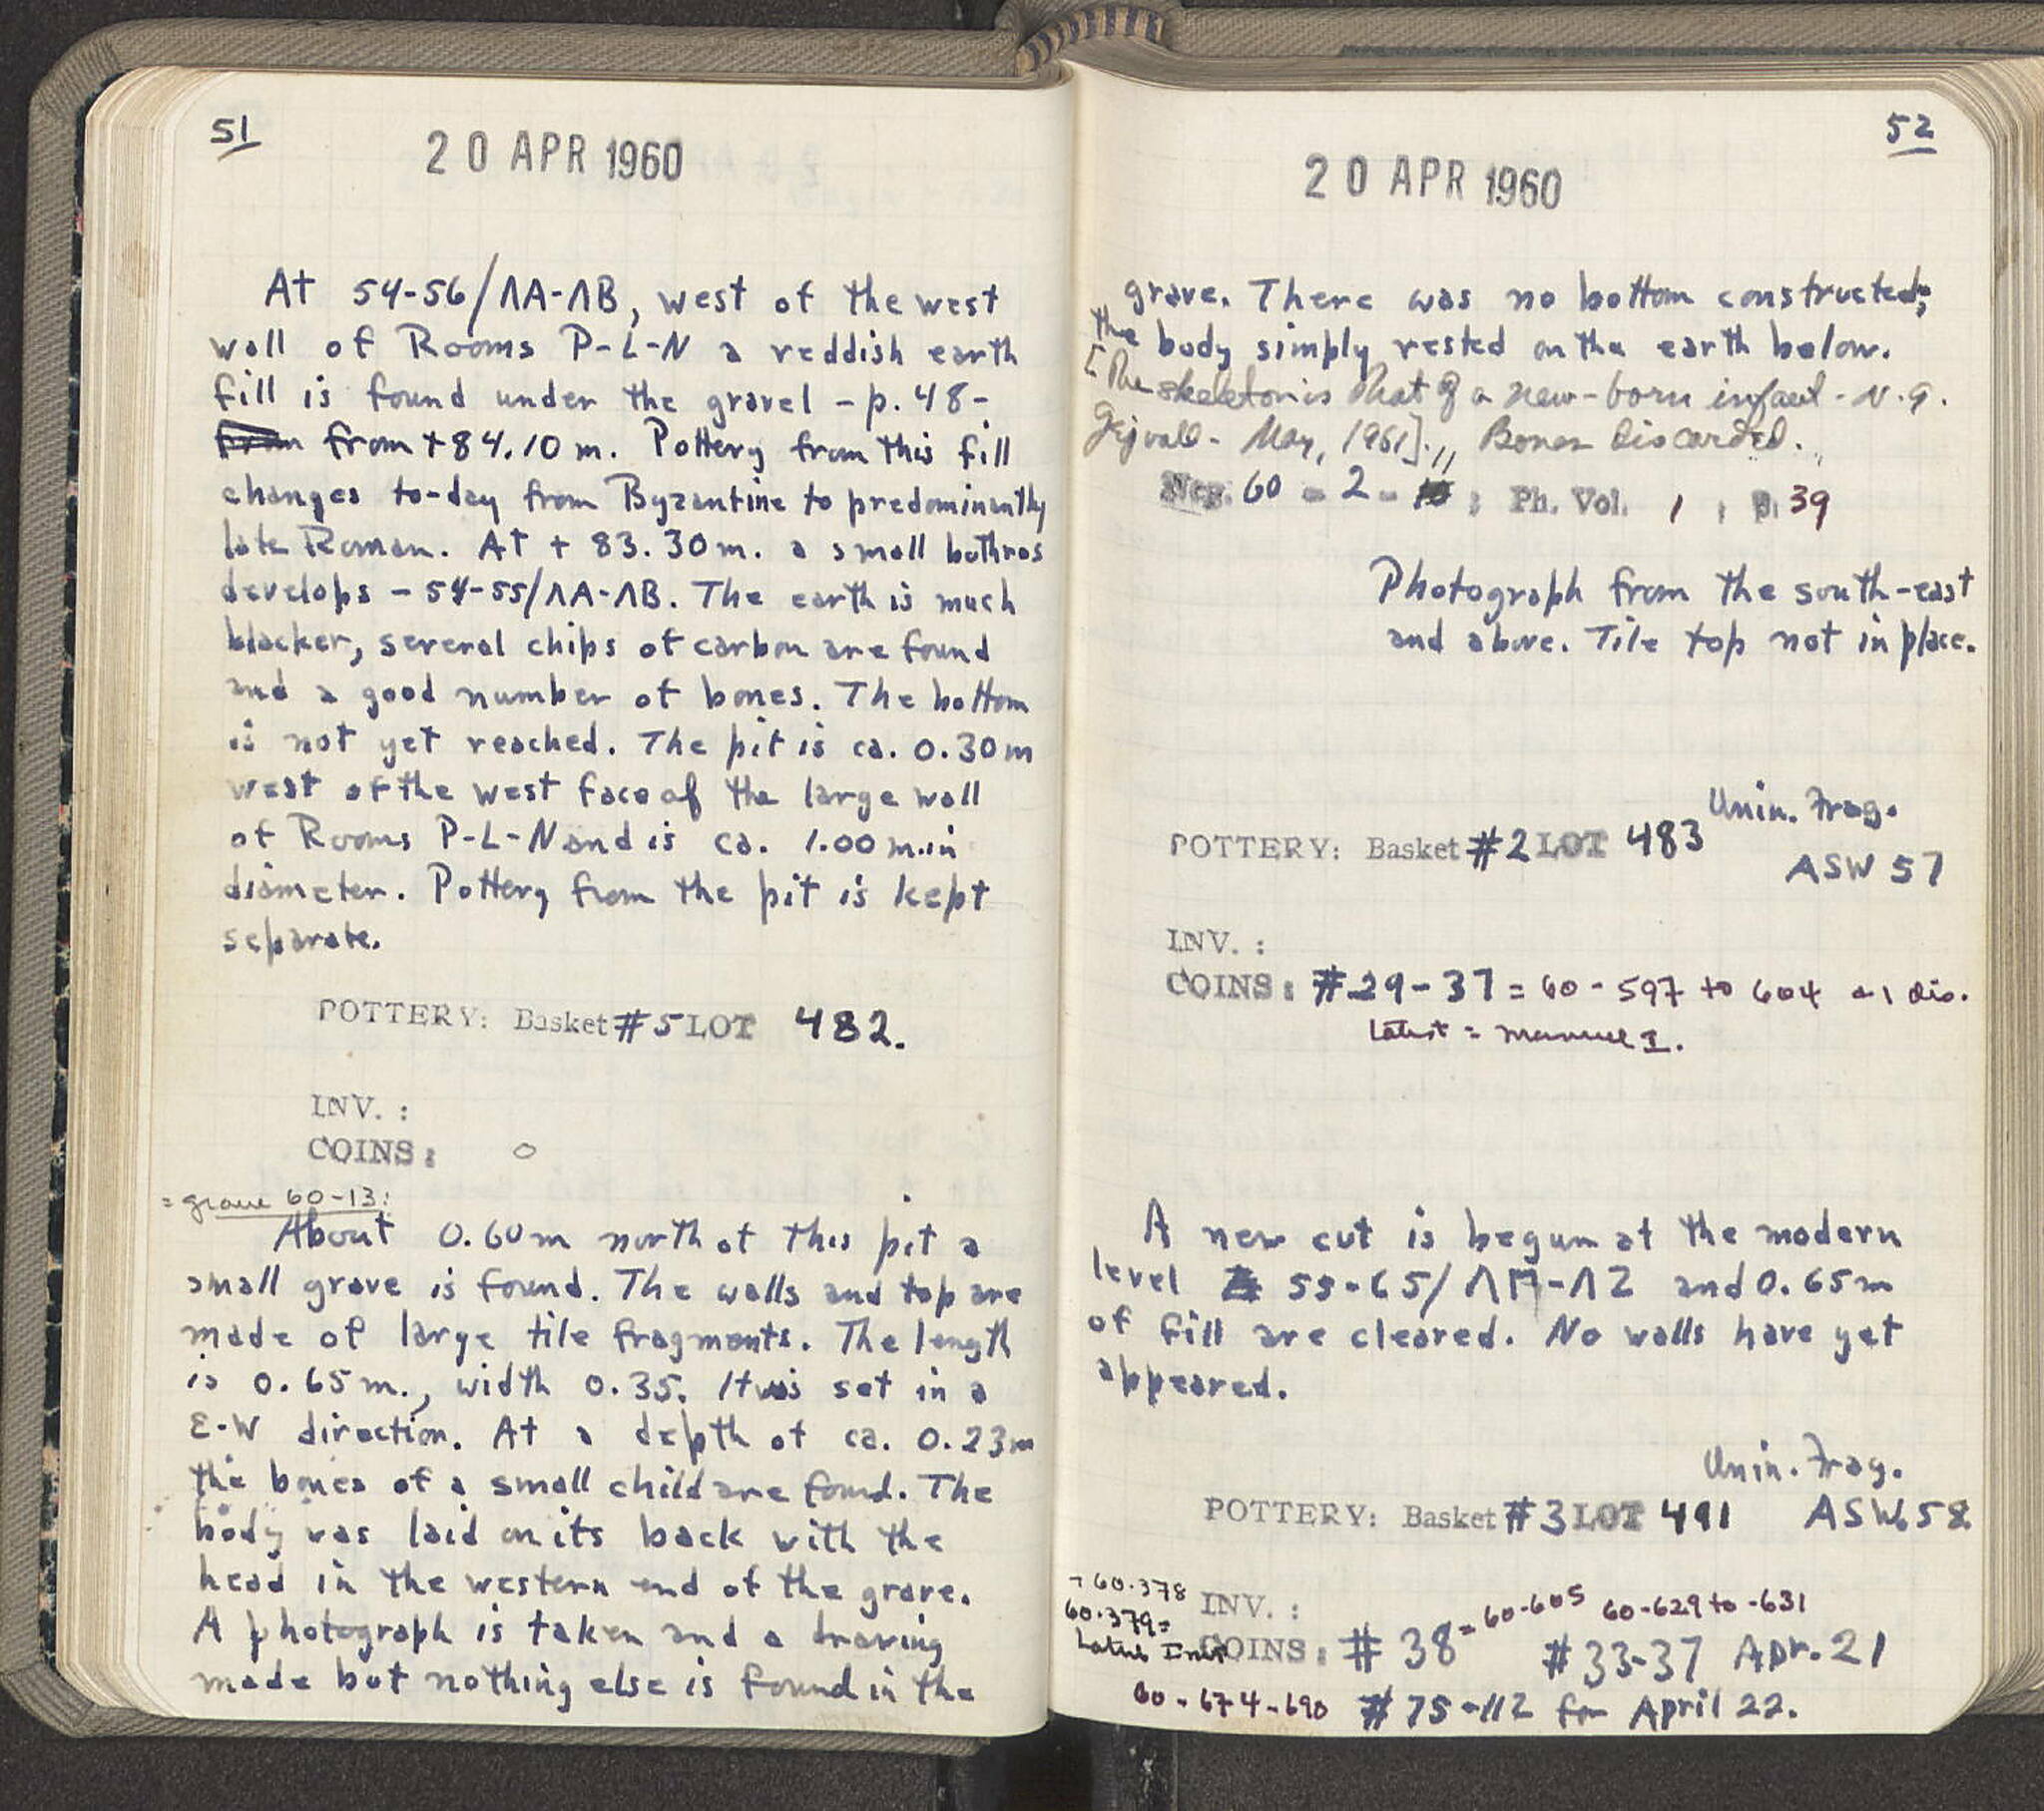 51
20 APR 1960
At 54-56/ΛA-ΛB, west of the west
wall of Rooms P-L-N a reddish earth
fill is found under the gravel - p. 48 -
from +84.10 m. Pottery from this fill
changes to-day from Byzantine to predominantly
late Roman. At + 83.30 m. a small bothros
develops - 54-55/ΛA-ΛB. The earth is much
blacker, several chips of carbon are found
and a good number of bones. The bottom
is not yet reached. The pit is ca. 0.30 m
west of the west face of the large wall
of Rooms P-L-N and is ca. 1.00 m. in
diameter. Pottery from the pit is kept
separate.
POTTERY: Basket #5 LOT 482.
INV. :
COINS: 0
= grave 60-13:
About 0.60 m north of this pit a
small grave is found. The walls and top are
made of large tile fragments. The length
is 0.65 m., width 0.35. It was set in a
E-W direction. At a depth of ca. 0.23 m
the bones of a small child are found. The
body was laid on its back with the
head in the western end of the grave.
A photograph is taken and a drawing
made but nothing else is found in the
52
20 APR 1960
grave. There was no bottom constructed;
the body simply rested on the earth below.
[The skeleton is that of a new-born infant - N. G.
Gejvall - May, 1961]. Bones discarded.
Neg. 60 - 2 - ; Ph. Vol. 1, p. 39
Photograph from the south-east
and above. Tile top not in place.
Unin. Frag.
POTTERY: Basket #2 LOT 483
ASW 57
INV. :
COINS: #29-37 = 60-597 to 604 + 1 dis.
Latest = Manuel I.
A new cut is begun at the modern
level 55-65/ and 0.65 m
of fill are cleared. No walls have yet
appeared.
Unin. Frag.
POTTERY: Basket #3 LOT 491 ASW 58
60-378
60-379 =
INV. :
COINS: #38 = 60-605 60-629 to -631
#33-37 Apr. 21
60-674-690 #75-112 for April 22.